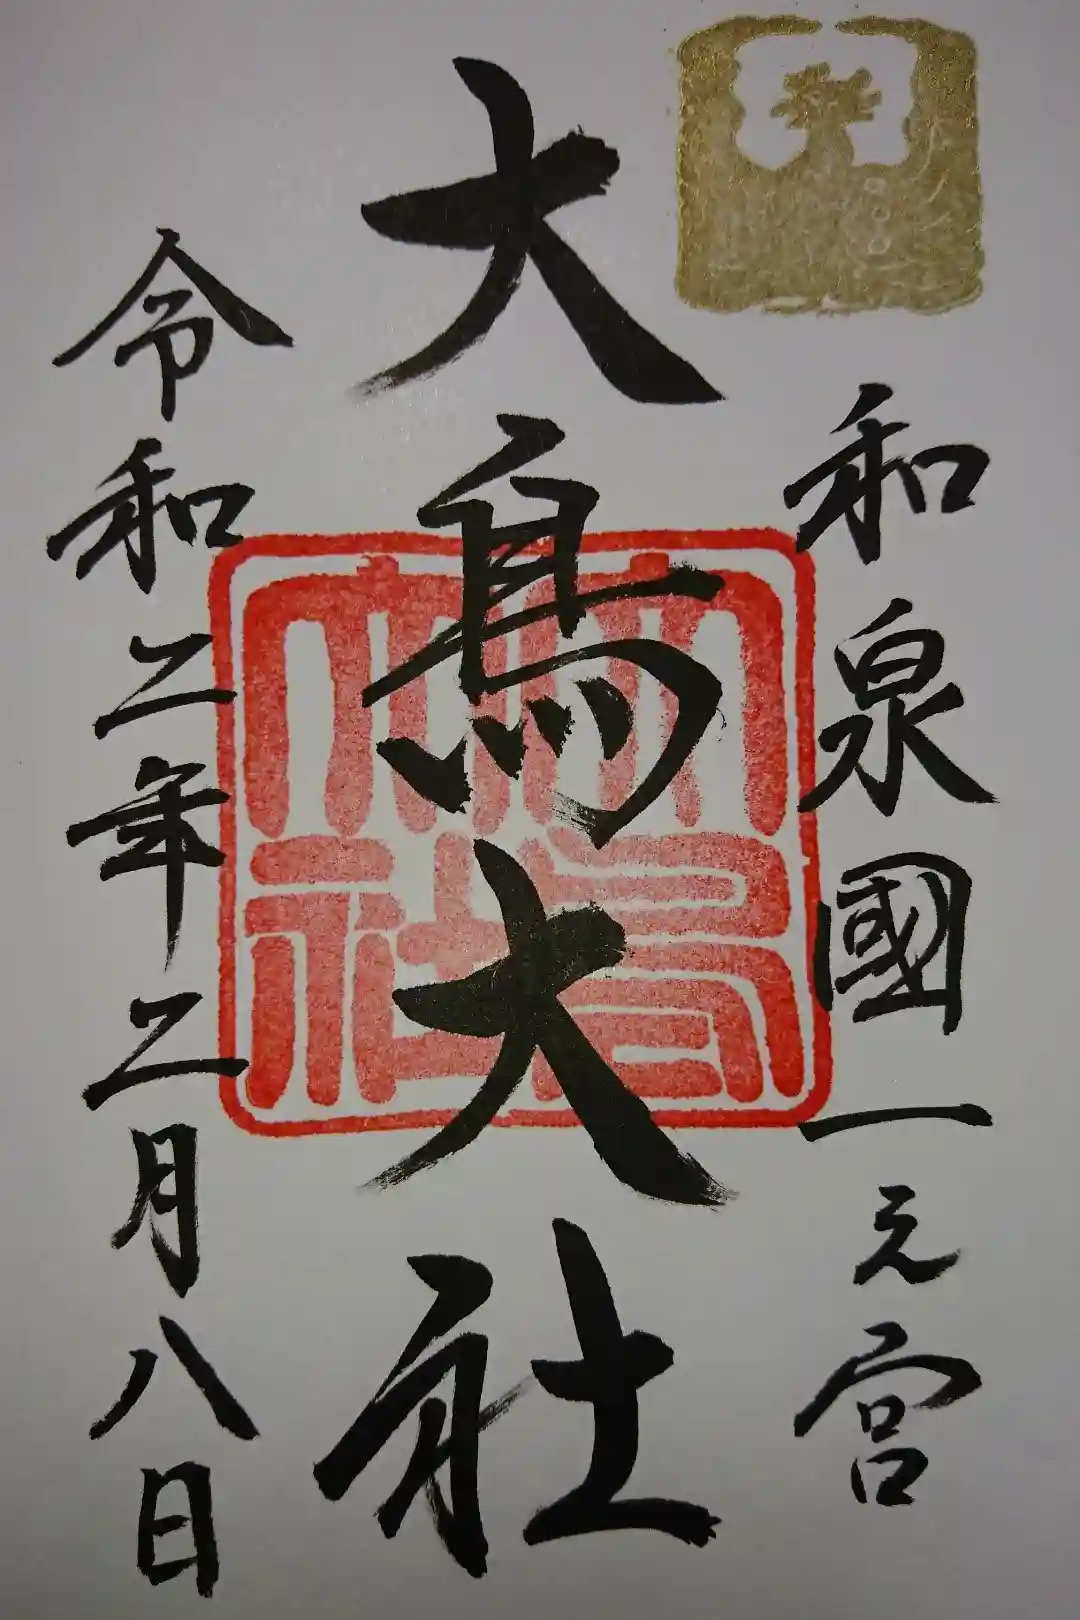 和泉國一之宮
大鳥大社
令和二年二月八日
大鳥大社